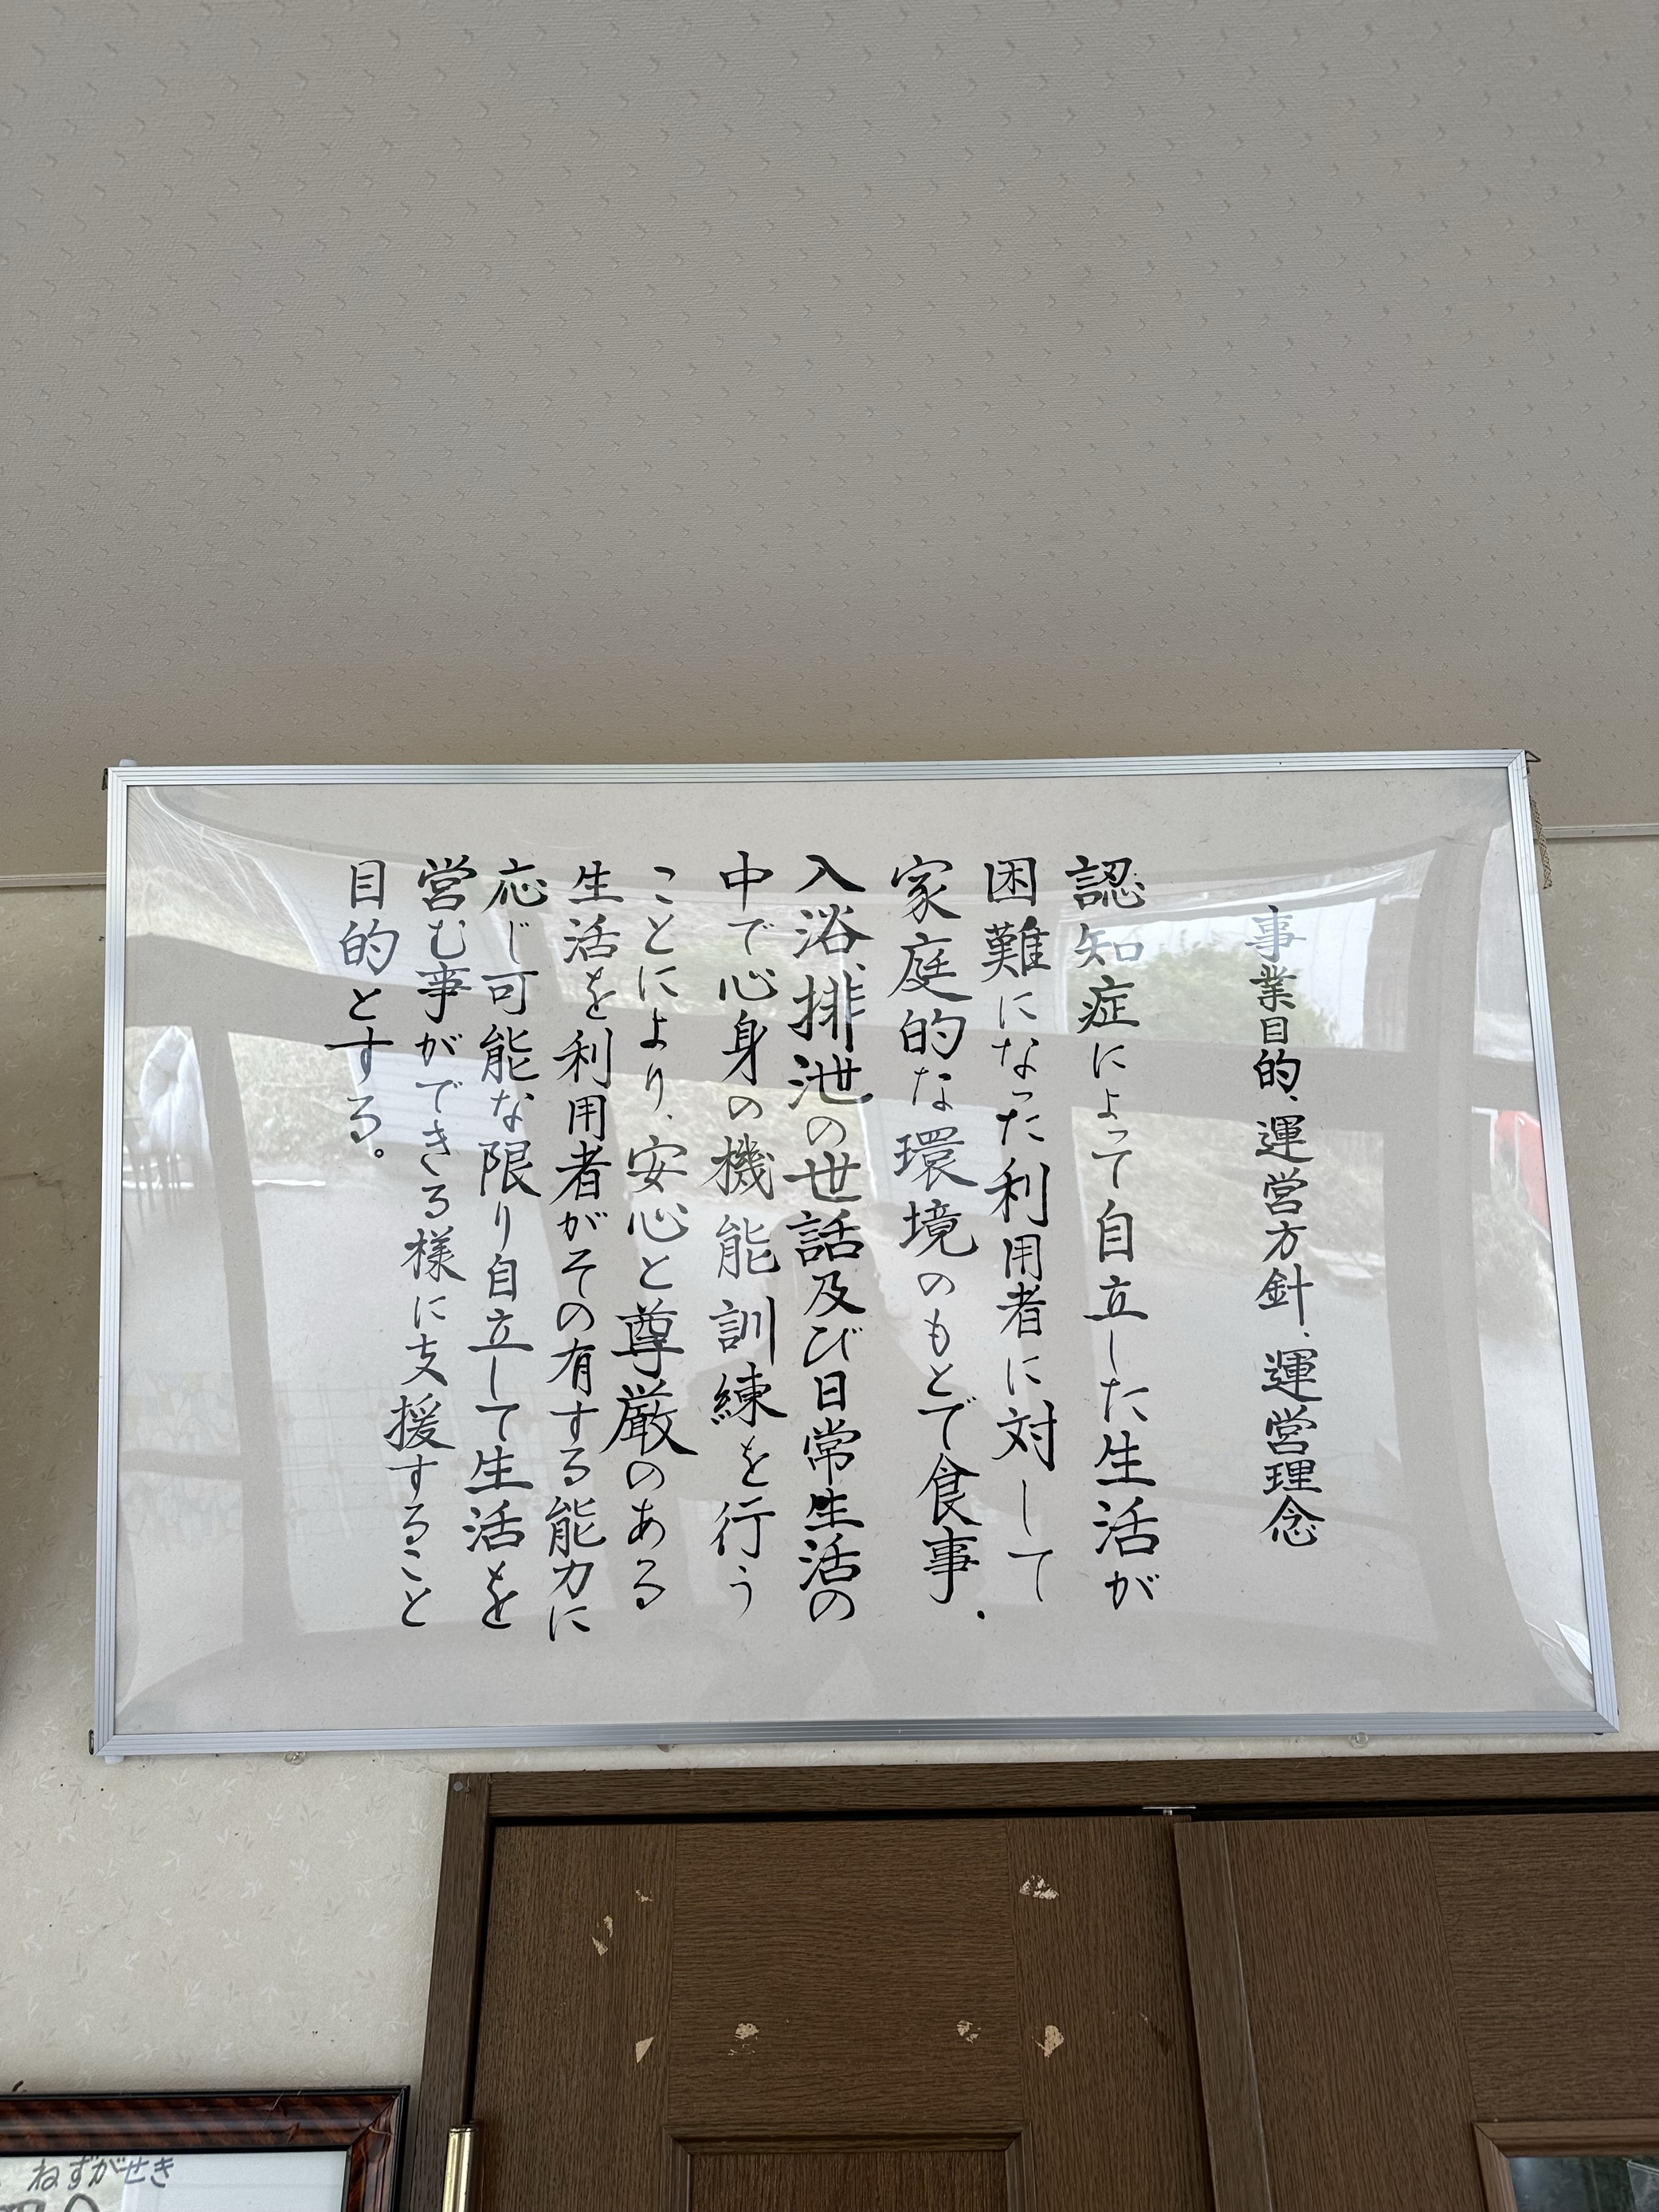 事業目的、運営方針、運営理念
認知症によって自立した生活が
困難になった利用者に対して
家庭的な環境のもとで食事、
入浴、排泄の世話及び日常生活の
中で心身の機能訓練を行う
ことにより、安心と尊厳のある
生活を利用者がその有する能力に
応じ可能な限り自立して生活を
営む事ができる様に支援すること
目的とする。
ねずがせき